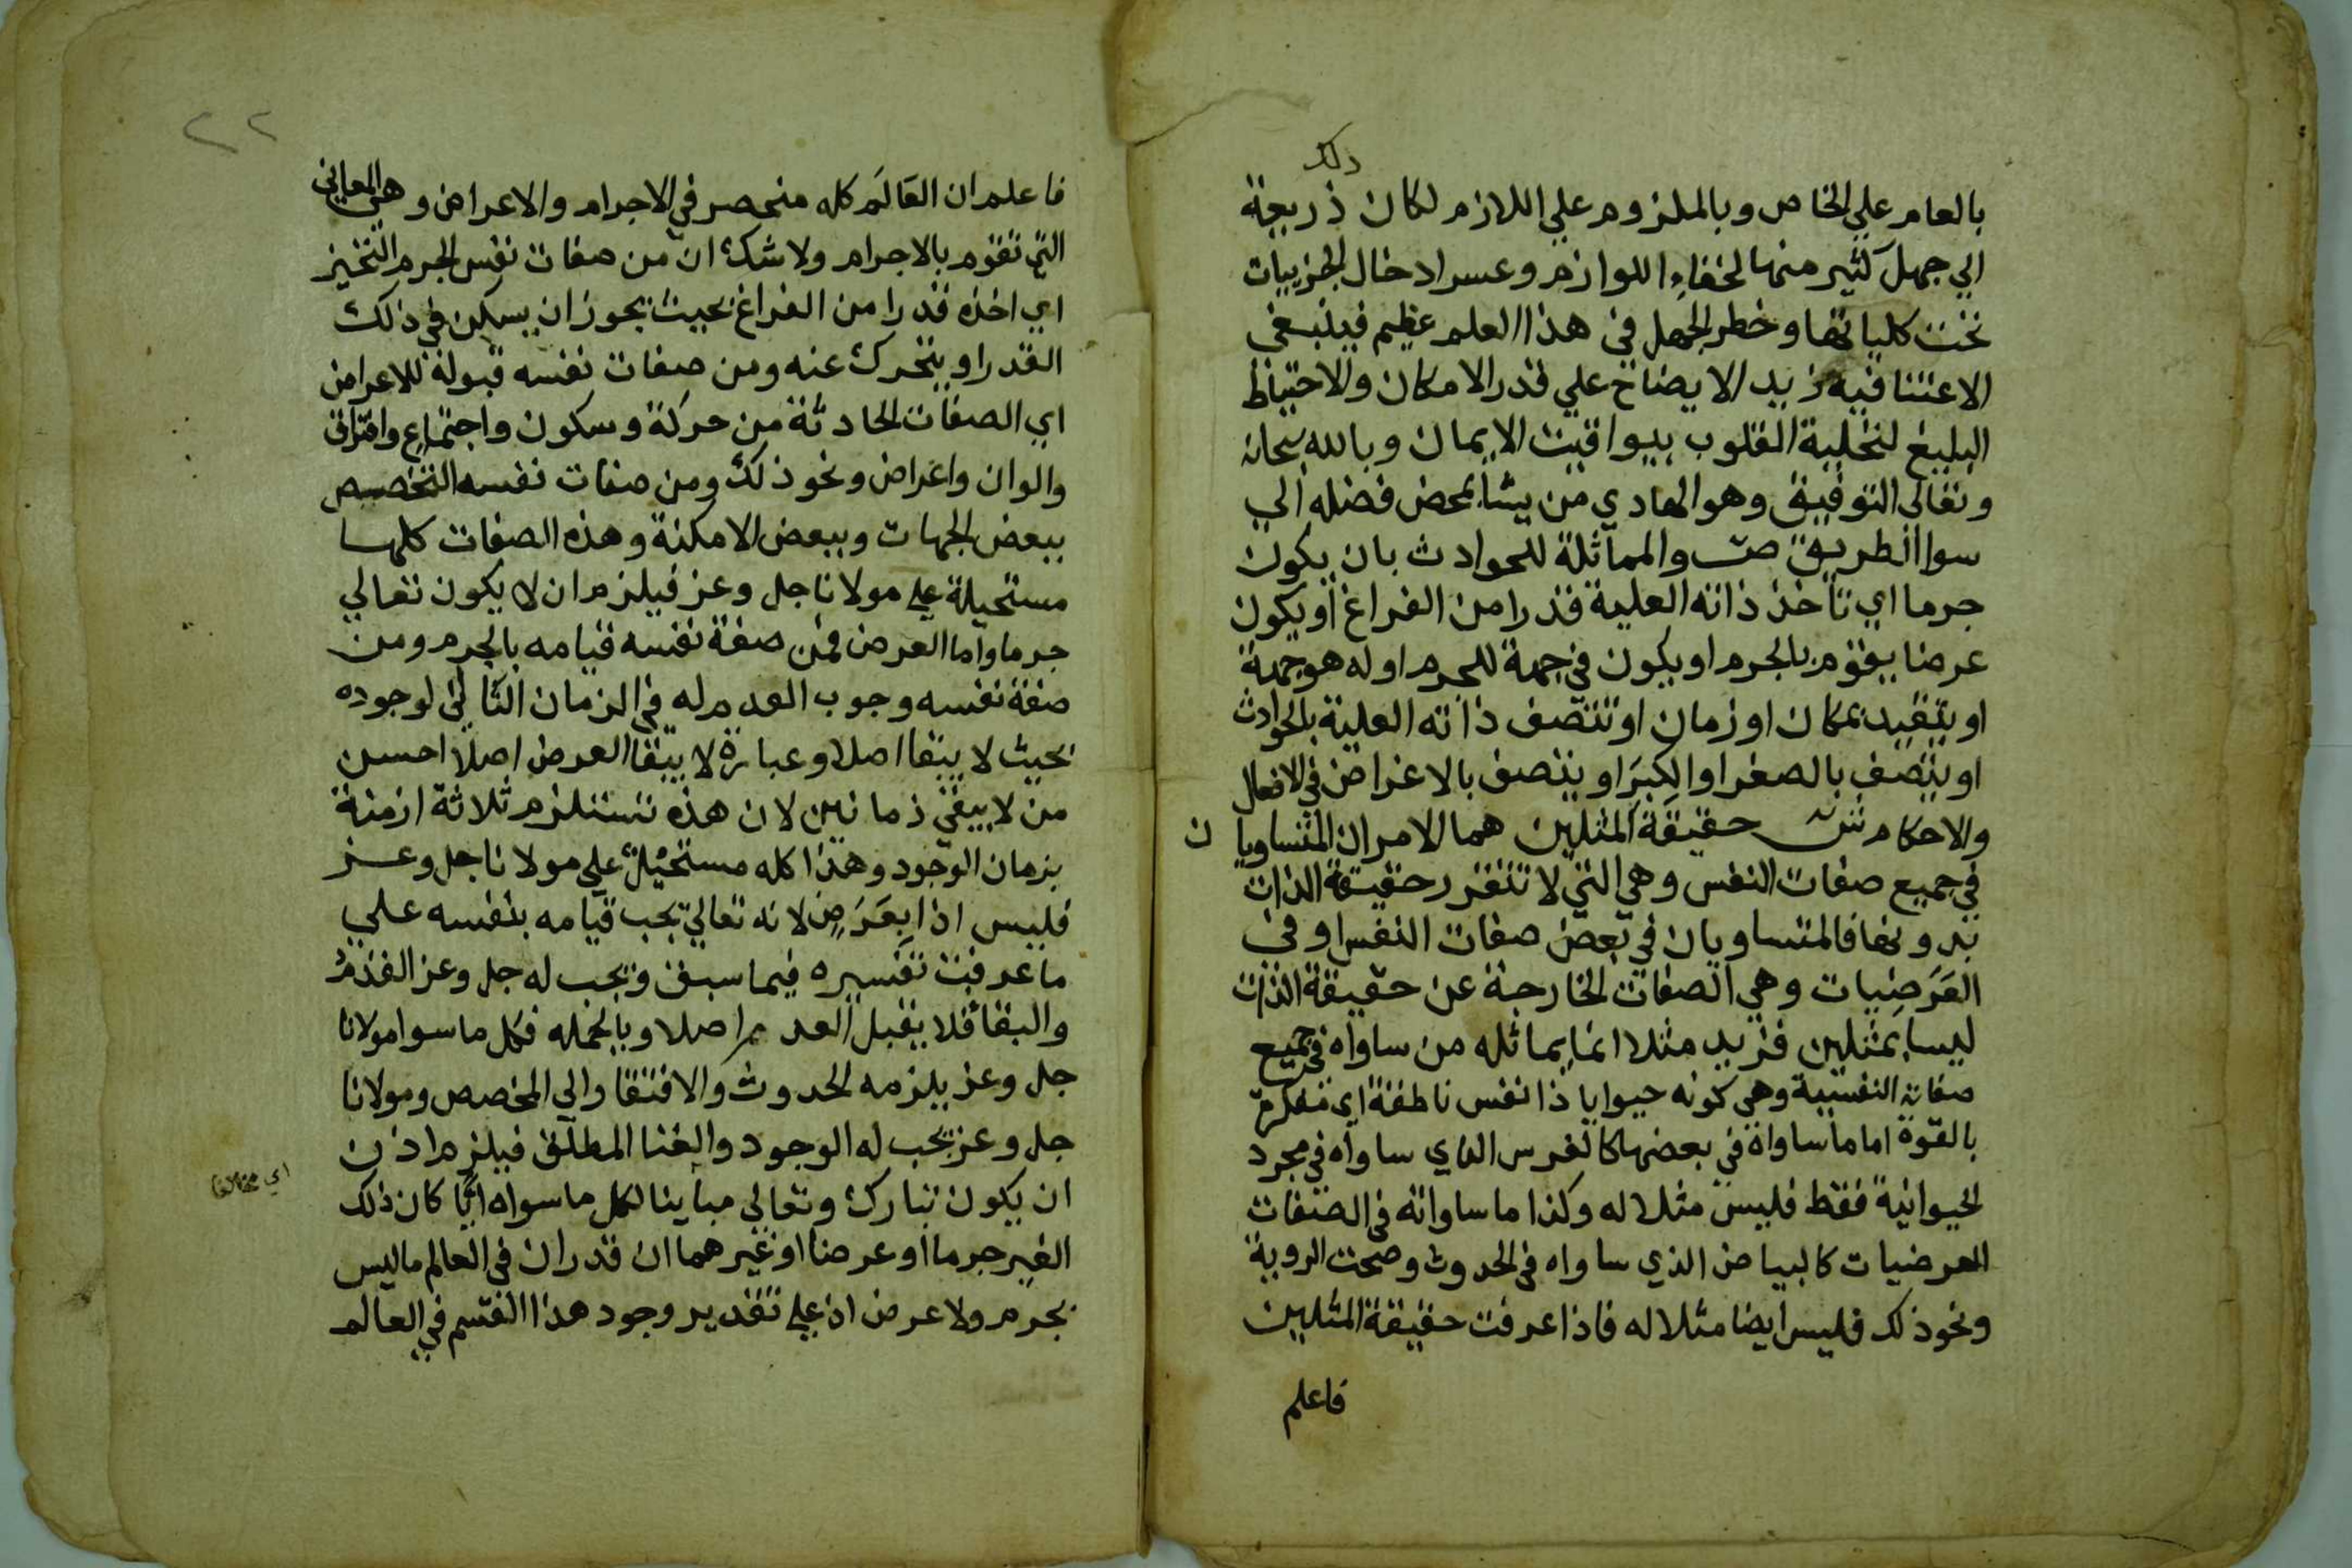 ذلك
بالعام علي الخاص وبالملزوم علي اللازم لكان ذريعة
الي جهل كثير منها لخفاء اللوازم وعسر ادخال الجزييات
تحت كلياتها وخطر الجهل في هذا العلم عظيم فينبغي
الاعتنا فيه بزيد الايضاح علي قدر الامكان والاحتياط
البليغ لتحلية القلوب بيواقيت الايمان وبالله سبحانه
وتعالي التوفيق وهو الهادي من يشا بمحض فضله الي
سوا الطريق ص والمماثلة للحوادث بان يكون
جرما اي تاخذ ذاته العلية قدرا من الفراغ او يكون
عرضا يقوم بالجرم او يكون في جهة للجرم او له هو جهة
او يتقيد بمكان او زمان او تتصف ذاته العلية بالحوادث
او يتصف بالصغر او الكبر او يتصف بالاغراض في الافعال
والاحكام ش حقيقة المثلين هما الامران المتساويان
في جميع صفات النفس وهي التي لا تتقرر حقيقة الذات
بدونها فالمتساويان في بعض صفات النفس او في
العَرَضيات وهي الصفات الخارجة عن حقيقة الذات
ليسا بمثلين فزيد مثلا انما يماثله من ساواه في جميع
صفاته النفسية وهي كونه حيوانا ذا نفس ناطقة اي مفكرة
بالقوة اما ما ساواه في بعضها كالفرس الذي ساواه في مجرد
الحيوانية فقط فليس مثلا له وكذا ما ساواته في الصفات
العرضيات كالبياض الذي ساواه في الحدوث وصحت الروية
ونحو ذلك فليس ايضا مثلا له فاذا عرفت حقيقة المثلين
فاعلم
٢٢
فاعلم ان العَالَم كله منحصر في الاجرام والاعراض وهي المعاني
التي تقوم بالاجرام ولا شك ان من صفات نفس الجرم التحيز
اي اخذه قدرا من الفراغ بحيث يجوز ان يسكن في ذلك
القدر او يتحرك عنه ومن صفات نفسه قبوله للاعراض
اي الصفات الحادثة من حركة وسكون واجتماع وافتراق
والوان واغراض ونحو ذلك ومن صفات نفسه التخصيص
ببعض الجهات وببعض الامكنة وهذه الصفات كلها
مستحيلة علي مولانا جل وعز فيلزم ان لا يكون تعالي
جرما واما العرض فمن صفة نفسه قيامه بالجرم ومن
صفة نفسه وجوب العدم له في الزمان الثاني لوجوده
بحيث لا يبقا اصلا وعبارة لا يبقا العرض اصلا احسن
من لا يبقي زمانين لان هذه تستلزم ثلاثة ازمنة
بزمان الوجود وهذا كله مستحيل علي مولانا جل وعز
فليس اذا بعَرَضٍ لانه تعالي يجب قيامه بنفسه علي
ما عرفت تفسيره فيما سبق ويجب له جل وعز القدم
والبقا فلا يقبل العدم اصلا وبالجمله فكل ما سوا مولانا
جل وعز يلزمه الحدوث والافتقار الي المخصص ومولانا
جل وعز يجب له الوجود والغنا المطلق فيلزم اذن
ان يكون تبارك وتعالي مباينا لكل ما سواه ايًّا كان ذلك
اي مخالفا
الغير جرما او عرضا او غيرهما ان قدر ان في العالم ما ليس
بجرم ولا عرض اذ علي تقدير وجود هذا القسم في العالم